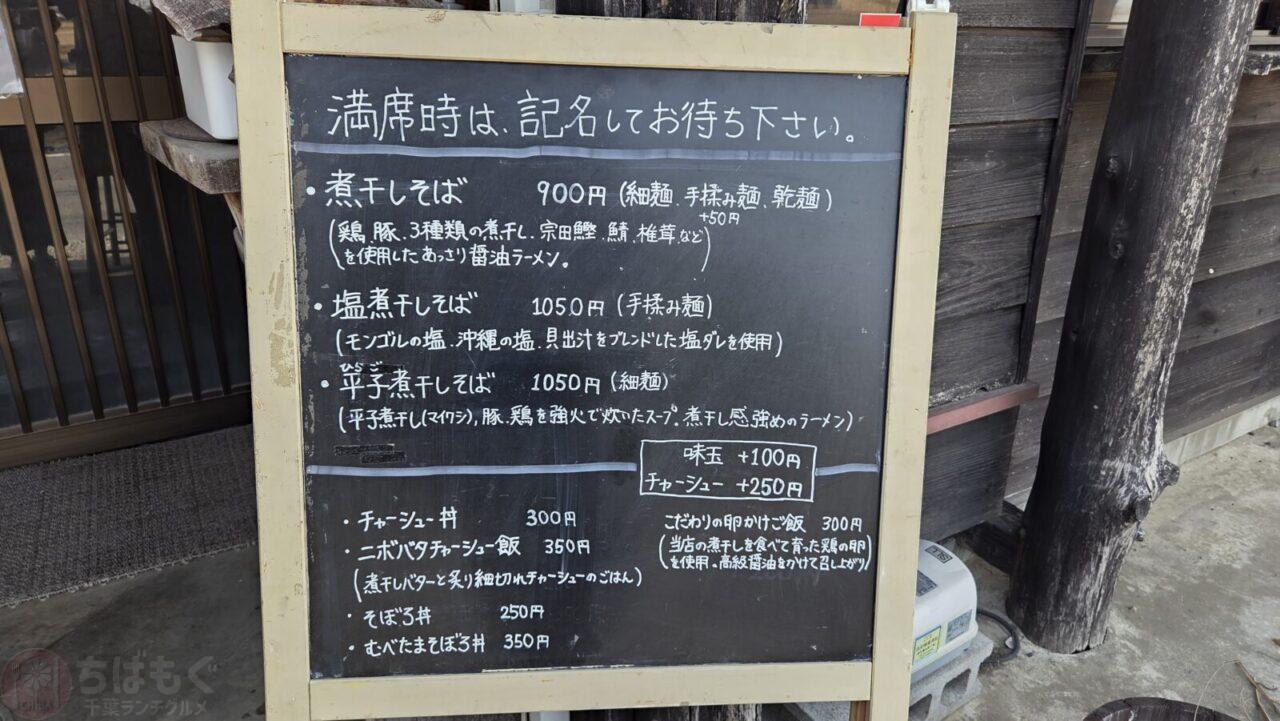 満席時は、記名してお待ち下さい。
・煮干しそば 900円(細麺、手揉み麺、乾麺)
+50円
(鶏、豚、3種類の煮干し、宗田鰹、鯖、椎茸など)
を使用したあっさり醤油ラーメン。
・塩煮干しそば 1050円(手揉み麺)
(モンゴルの塩、沖縄の塩、貝出汁をブレンドした塩ダレを使用)
・平子煮干しそば 1050円(細麺)
(平子煮干し(マイワシ)、豚、鶏を強火で炊いたスープ。煮干し感強めのラーメン)
味玉 +100円
チャーシュー +250円
・チャーシュー丼 300円
・ニボバタチャーシュー飯 350円
(煮干しバターと炙り細切れチャーシューのごはん)
・そぼろ丼 250円
・むべたまそぼろ丼 350円
こだわりの卵かけご飯 300円
(当店の煮干しを食べて育った鶏の卵
を使用。高級醤油をかけて召し上がり)
ちばもぐ
千葉ランチグルメ